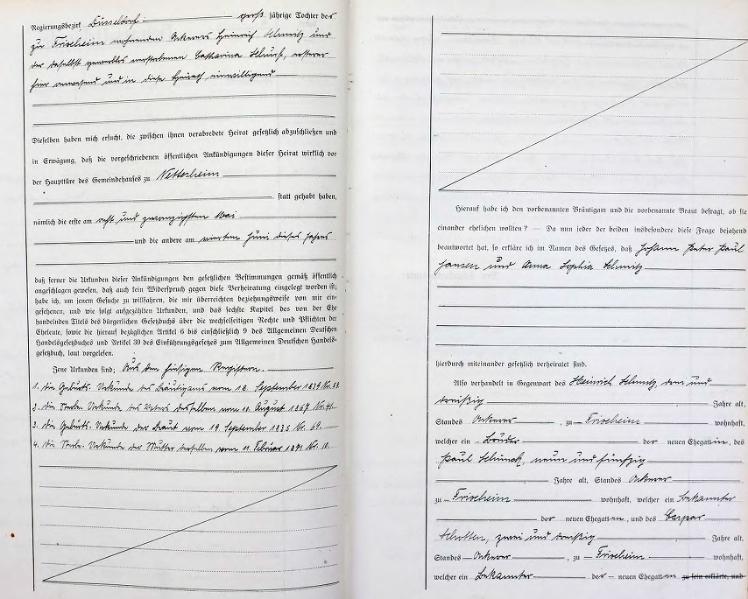 Regierungsbezirk Düsseldorf groß jährige Tochter des
zu Frixheim wohnenden Ackerers Heinrich Schmitz und
der daselbst gewerblos verstorbenen Catharina, ersterer
hier anwesend und in diese Heirath einwilligend
Dieselben haben mich ersucht, die zwischen ihnen verabredete Heirat gesetzlich abzuschließen und
in Erwägung, daß die vorgeschriebenen öffentlichen Ankündigungen dieser Heirat wirklich vor
der Haupttüre des Gemeindehauses zu Nettesheim
statt gehabt haben,
nämlich die erste am acht und zwanzigsten Mai
und die andere am vierten Juni dieses Jahres
daß ferner die Urkunden dieser Ankündigungen den gesetzlichen Bestimmungen gemäß öffentlich
angeschlagen gewesen, daß auch kein Widerspruch gegen diese Verheiratung eingelegt worden ist;
habe ich, um jenem Gesuche zu willfahren, die mir überreichten beziehungsweise von mir ein-
gesehenen, und wie folgt aufgezählten Urkunden, und das sechste Kapitel des von der Ehe
handelnden Titels des bürgerlichen Gesetzbuchs über die wechselseitigen Rechte und Pflichten der
Eheleute, sowie die hierauf bezüglichen Artikel 6 bis einschließlich 9 des Allgemeinen Deutschen
Handelsgesetzbuches und Artikel 30 des Einführungsgesetzes zum Allgemeinen Deutschen Handels-
gesetzbuch, laut vorgelesen.
Jene Urkunden sind: Aus den hiesigen Registern.
1. die Geburts-Urkunde des Bräutigams vom 18. September 1839 No.
2. die Sterbe-Urkunde des Vaters desselben vom 10. August 1867 No. 41.
3. die Geburts-Urkunde der Braut vom 19. September 1835 No. 69.
4. die Sterbe-Urkunde der Mutter derselben vom 11. Februar 1871 No. 10.
Hierauf habe ich den vorbenannten Bräutigam und die vorbenannte Braut befragt, ob sie
einander ehelichen wollten? — Da nun jeder der beiden insbesondere diese Frage bejahend
beantwortet hat, so erkläre ich im Namen des Gesetzes, daß Johann Peter Paul
Jansen und Anna Sophia Schmitz
hierdurch miteinander gesetzlich verheiratet sind.
Also verhandelt in Gegenwart des Heinrich Schmitz, drei und
dreißig Jahre alt,
Standes Ackerer, zu Frixheim wohnhaft,
welcher ein Bruder der neuen Ehegattin, des
Paul, neun und fünfzig
Jahre alt, Standes Ackerer
zu Frixheim wohnhaft, welcher ein Bekannter
der neuen Ehegattin, und des Caspar
zwei und dreißig Jahre alt,
Standes Ackerer, zu Frixheim wohnhaft,
welcher ein Bekannter der neuen Ehegattin zu sein erklärte, und